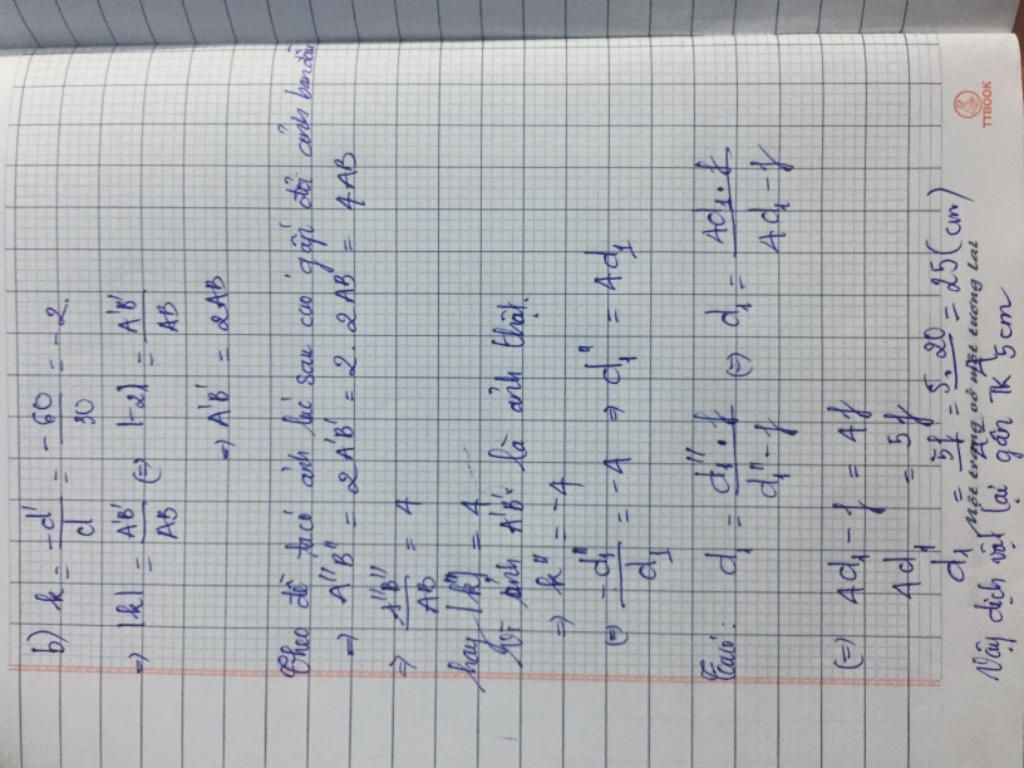 b) k = -d'/d = - 60/30 = -2.
=> |k| = A'B'/AB (=) |-2| = A'B'/AB
=> A'B' = 2AB
Theo đề ta có ảnh lúc sau cao gấp đôi ảnh ban đầu
=> A''B'' = 2A'B' = 2.2AB = 4AB
=> A''B''/AB = 4
hay |k''| = 4
Vì ảnh A'B' là ảnh thật.
=> k'' = -4
(=) -d₁''/d₁ = -4 => d₁'' = 4d₁
Ta có: d₁ = d₁''.f/d₁''-f (=) d₁ = 4d₁.f/4d₁-f
(=) 4d₁ - f = 4f
4d₁ = 5f
d₁ = 5f/4 = 5.20/4 = 25 (cm)
Vậy dịch vật lại gần TK 5cm
TTBOOK